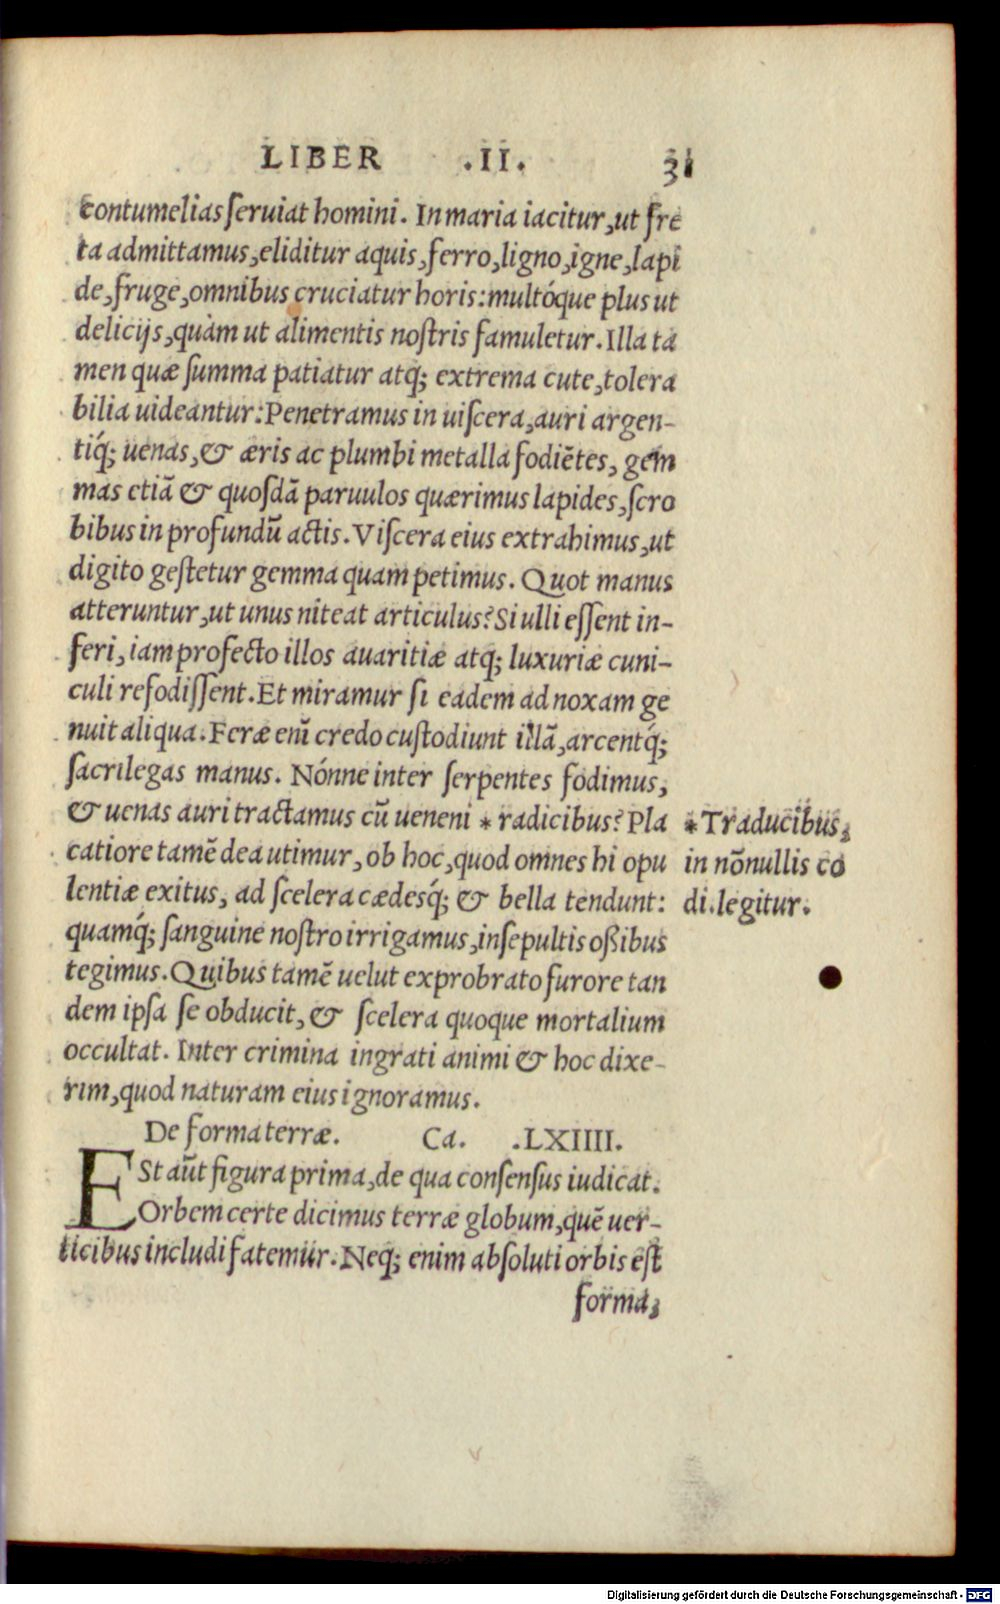 LIBER .II. 31
contumelias ſeruiat homini. In maria iacitur, ut fre
ta admittamus, eliditur aquis, ferro, ligno, igne, lapi
de, fruge, omnibus cruciatur horis: multóque plus ut
delicijs, quàm ut alimentis noſtris famuletur. Illa ta
men quæ ſumma patiatur atq; extrema cute, tolera
bilia uideantur: Penetramus in uiſcera, auri argen-
tiq́; uenas, & æris ac plumbi metalla fodiētes, gem
mas etiā & quoſdā paruulos quærimus lapides, ſcro
bibus in profundū actis. Viſcera eius extrahimus, ut
digito geſtetur gemma quam petimus. Quot manus
atteruntur, ut unus niteat articulus? Si ulli eſſent in-
feri, iam profecto illos auaritiæ atq; luxuriæ cuni-
culi refodiſſent. Et miramur ſi eadem ad noxam ge
nuit aliqua. Feræ eni̅ credo cuſtodiunt illā, arcentq́;
ſacrilegas manus. Nónne inter ſerpentes fodimus,
& uenas auri tractamus cū ueneni * radicibus? Pla
catiore tamē dea utimur, ob hoc, quod omnes hi opu
lentiæ exitus, ad ſcelera cædesq́; & bella tendunt:
quamq́; ſanguine noſtro irrigamus, inſepultis oßibus
tegimus. Quibus tamē uelut exprobrato furore tan
dem ipſa ſe obducit, & ſcelera quoque mortalium
occultat. Inter crimina ingrati animi & hoc dixe-
rim, quod naturam eius ignoramus.
*Traducibus,
in nōnullis co
di. legitur.
De forma terræ. Ca. .LXIIII.
ESt aūt figura prima, de qua conſenſus iudicat.
Orbem certe dicimus terræ globum, quē uer-
ticibus includi fatemur. Neq; enim abſoluti orbis eſt
forma,
Digitalisierung gefördert durch die Deutsche Forschungsgemeinschaft - DFG